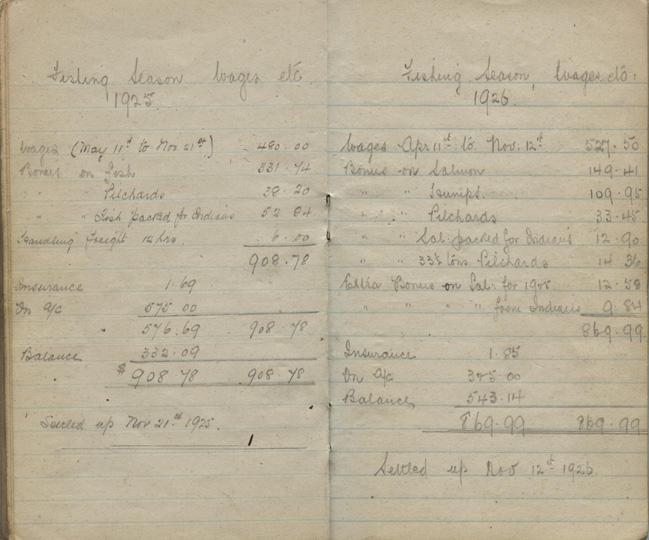 Fishing Season Wages etc
1925
Wages (May 11th to Nov 21st) 480.00
Bonus on Fish 331.74
" " Pilchards 38.20
" " Fish packed for Indians 52.84
Handling Freight 12 hrs. 6.00
908.78
Insurance 1.69
On a/c 575.00
576.69 908.78
Balance 332.09
$ 908.78 908.78
Settled up Nov 21st 1925.
Fishing Season, Wages, etc.
1926.
Wages Apr 11th to Nov. 12th 527.50
Bonus on Salmon 149.41
" " 109.95
" " Pilchards 33.45
" " Sal. packed for Indians 12.90
" " tons Pilchards 14.36
Extra Bonus on Sal. for 12.58
" " " " from Indians 9.84
869.99
Insurance 1.85
On a/c 325.00
Balance 543.14
869.99 869.99
Settled up Nov 12th 1926.